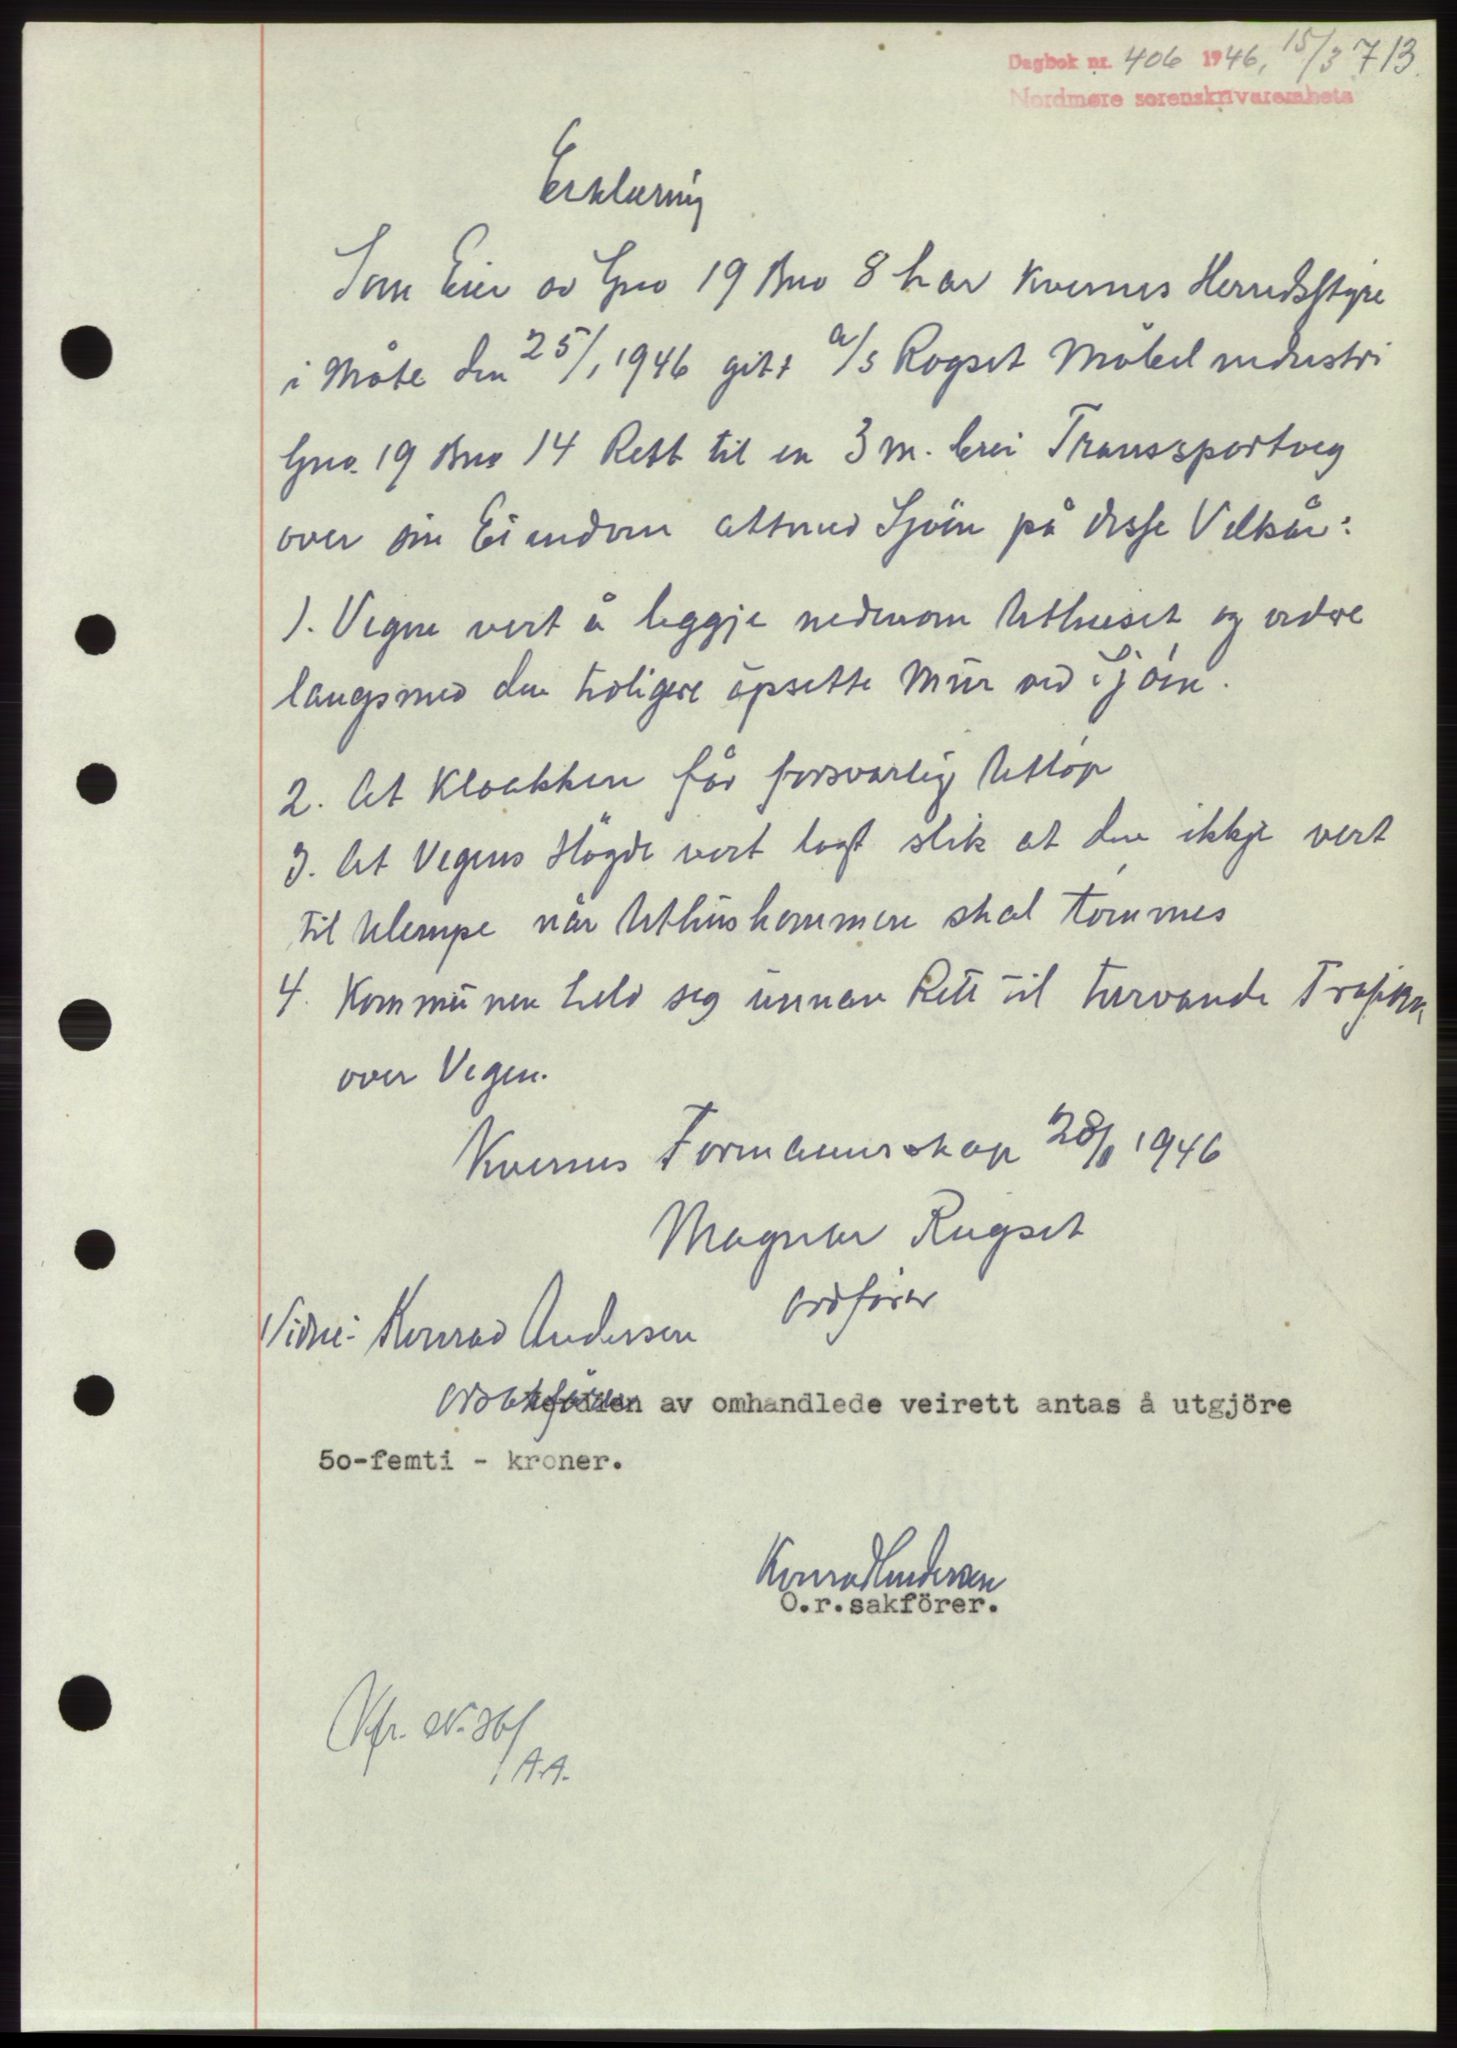 Dagbok nr. 406 1946, 15/3 713.
Nordmøre sorenskrivarembete
Erklæring
Som Eier av Gno 19 Bno 8 har Kvernes Herredsstyre
i Møte den 25/1 1946 gitt a/s Rogset Möbelindustri
Gno. 19 Bno 14 Rett til en 3 m. brei Transsportveg
over sin Eiendom attmed Sjöen på disse Vilkår:
1. Vegen vert å leggje nedenom Uthuset og vidre
langsmed den tidligere öpsette Mur ved Sjöen.
2. At Kloakken får forsvarlig Utlöp
3. At Vegens Högde vert lagt slik at den ikkje vert
til Ulempe når Uthuskommen skal tömmes
4. Kommunen held seg unnan Rett til turvande
over Vegen.
Kvernes Formannskap 28/1 1946
Magnar Rogset
ordförer
Vidne: Konrad Andersen
av omhandlede veirett antas å utgjöre
5o-femti - kroner.
Konrad Andersen
O.r.sakförer.
A.A.